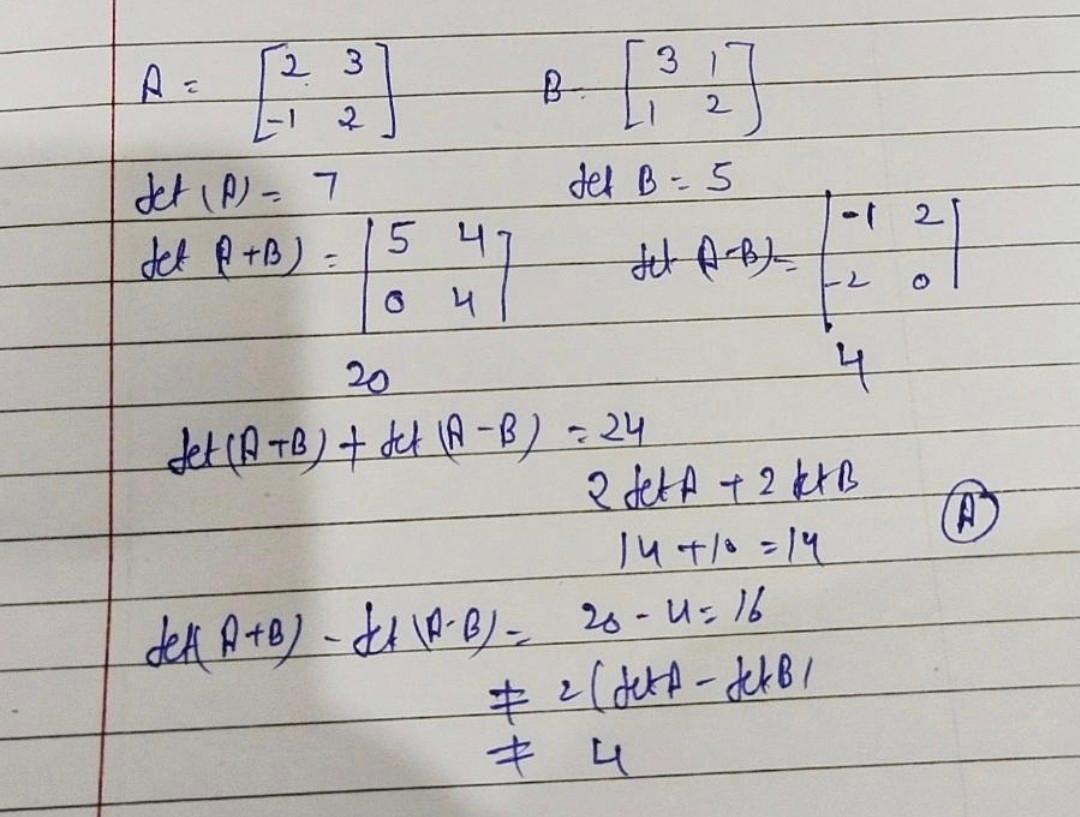 A = [2 3 -1 2] B = [3 1 1 2]
det (A) = 7 det B = 5
det (A+B) = |5 4 0 4| det (A-B) = |-1 2 -2 0|
20 4
det (A+B) + det (A-B) = 24
2 det A + 2 det B
14 + 10 = 14 (A)
det (A+B) - det (A-B) = 20 - 4 = 16
≠ 2 (det A - det B)
≠ 4